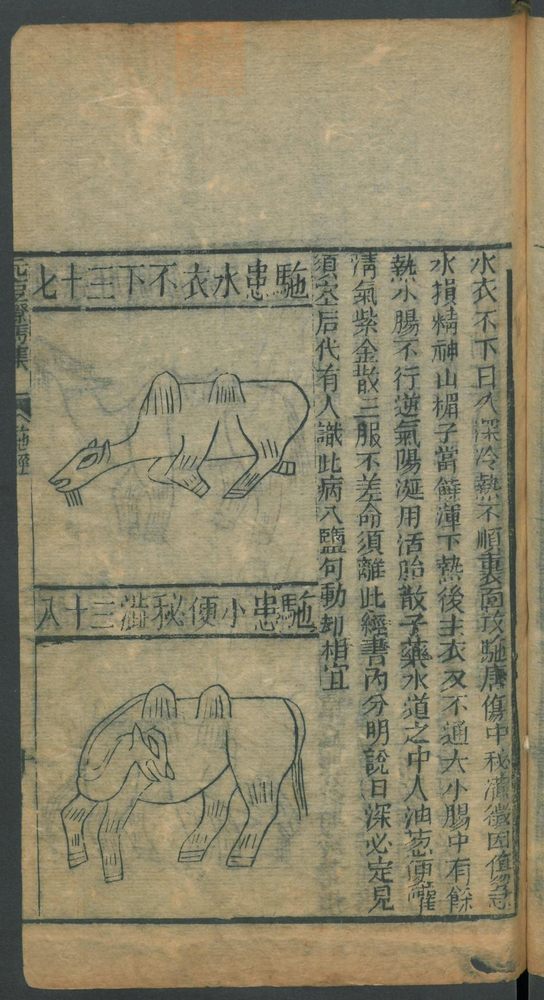 水衣不下日久深冷熱不順裏面攻駞病傷中秘澁微因值急
水損精神山梔子當歸渾下熱後主衣又不通大小腸中有餘
熱小腸不行逆氣陽涎用活胎散子藥水道之中人油葱便灌
清氣紫金散三服不差命須離此經書內分明說日深必定見
須空后代有人識此病八鹽何動却相宜
駞患水衣不下三十七
駞患小便秘澁三十八
元亨療馬集
駞經